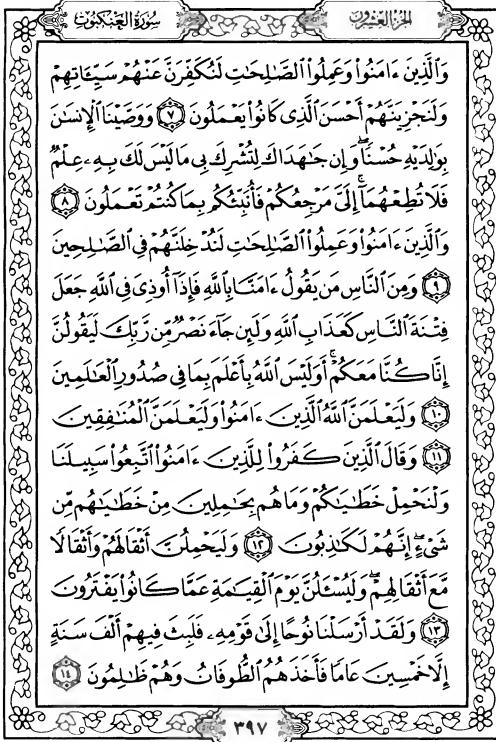 سُورَةُ العَنكَبُوتِ الجُزْءُ العِشْرُونَ
وَٱلَّذِينَ ءَامَنُوا۟ وَعَمِلُوا۟ ٱلصَّـٰلِحَـٰتِ لَنُكَفِّرَنَّ عَنْهُمْ سَيِّـَٔاتِهِمْ
وَلَنَجْزِيَنَّهُمْ أَحْسَنَ ٱلَّذِى كَانُوا۟ يَعْمَلُونَ ٧ وَوَصَّيْنَا ٱلْإِنسَـٰنَ
بِوَٰلِدَيْهِ حُسْنًا ۖ وَإِن جَـٰهَدَاكَ لِتُشْرِكَ بِى مَا لَيْسَ لَكَ بِهِۦ عِلْمٌ
فَلَا تُطِعْهُمَآ ۚ إِلَىَّ مَرْجِعُكُمْ فَأُنَبِّئُكُم بِمَا كُنتُمْ تَعْمَلُونَ ٨
وَٱلَّذِينَ ءَامَنُوا۟ وَعَمِلُوا۟ ٱلصَّـٰلِحَـٰتِ لَنُدْخِلَنَّهُمْ فِى ٱلصَّـٰلِحِينَ
٩ وَمِنَ ٱلنَّاسِ مَن يَقُولُ ءَامَنَّا بِٱللَّهِ فَإِذَآ أُوذِىَ فِى ٱللَّهِ جَعَلَ
فِتْنَةَ ٱلنَّاسِ كَعَذَابِ ٱللَّهِ وَلَئِن جَآءَ نَصْرٌ مِّن رَّبِّكَ لَيَقُولُنَّ
إِنَّا كُنَّا مَعَكُمْ ۚ أَوَلَيْسَ ٱللَّهُ بِأَعْلَمَ بِمَا فِى صُدُورِ ٱلْعَـٰلَمِينَ
١٠ وَلَيَعْلَمَنَّ ٱللَّهُ ٱلَّذِينَ ءَامَنُوا۟ وَلَيَعْلَمَنَّ ٱلْمُنَـٰفِقِينَ
١١ وَقَالَ ٱلَّذِينَ كَفَرُوا۟ لِلَّذِينَ ءَامَنُوا۟ ٱتَّبِعُوا۟ سَبِيلَنَا
وَلْنَحْمِلْ خَطَـٰيَـٰكُمْ وَمَا هُم بِحَـٰمِلِينَ مِنْ خَطَـٰيَـٰهُم مِّن
شَىْءٍ ۖ إِنَّهُمْ لَكَـٰذِبُونَ ١٢ وَلَيَحْمِلُنَّ أَثْقَالَهُمْ وَأَثْقَالًا
مَّعَ أَثْقَالِهِمْ ۖ وَلَيُسْـَٔلُنَّ يَوْمَ ٱلْقِيَـٰمَةِ عَمَّا كَانُوا۟ يَفْتَرُونَ
١٣ وَلَقَدْ أَرْسَلْنَا نُوحًا إِلَىٰ قَوْمِهِۦ فَلَبِثَ فِيهِمْ أَلْفَ سَنَةٍ
إِلَّا خَمْسِينَ عَامًا فَأَخَذَهُمُ ٱلطُّوفَانُ وَهُمْ ظَـٰلِمُونَ ١٤
٣٩٧